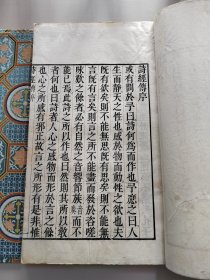 詩經傳序
或有問於予曰詩何為而作也予應之曰人
生而靜天之性也感於物而動性之欲也夫
既有欲矣則不能無思既有思矣則不能無
言既有言矣則言之所不能盡而發於咨嗟
咏歎之餘者必有自然之音響節族音奏而不
能已焉此詩之所以作也曰然則其所以教
者何也曰詩者人心之感物而形於言之餘
也心之所感有邪正故言之所形有是非惟